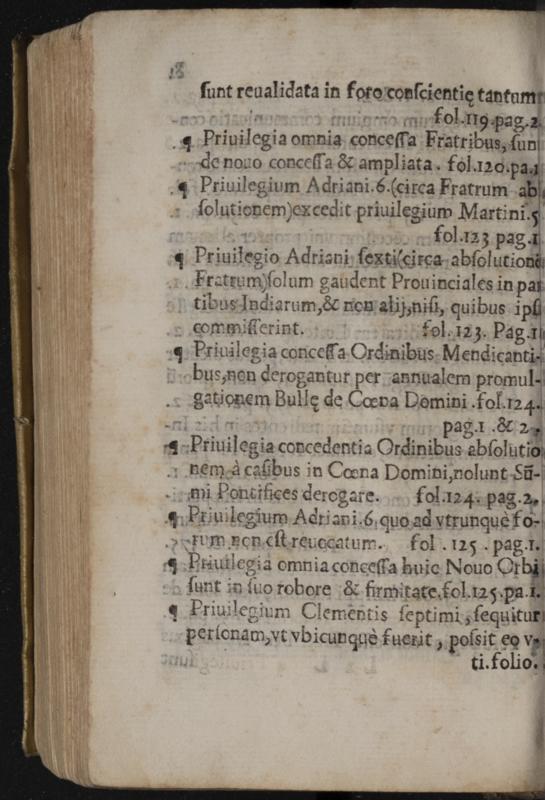 sunt reualidata in foro conscientię tantum
fol.119.pag.2.
¶ Priuilegia omnia concessa Fratribus, sun
de nouo concessa & ampliata. fol.120.pa.1
¶ Priuilegium Adriani.6.(circa Fratrum ab
solutionem)excedit priuilegium Martini.5
fol.123 pag.1
¶ Priuilegio Adriani sexti(circa absolutione
Fratrum)solum gaudent Prouinciales in par
tibus Indiarum,& non alij,nisi, quibus ipsi
commisserint. fol. 123. Pag.1
¶ Priuilegia concessa Ordinibus Mendicanti-
bus,non derogantur per annualem promul-
gationem Bullę de Cœna Domini.fol.124.
pag.1.& 2.
¶ Priuilegia concedentia Ordinibus absolutio
nem à casibus in Cœna Domini,nolunt Sū-
mi Pontifices derogare. fol.124. pag.2.
¶ Priuilegium Adriani.6,quo ad vtrunquè fo-
rum non est reuocatum. fol.125.pag.1.
¶ Priuilegia omnia concessa huic Nouo Orbi
sunt in suo robore & firmitate.fol.125.pa.1.
¶ Priuilegium Clementis septimi, sequitur
personam,vt vbicunquè fuerit, possit eo v-
ti.folio.